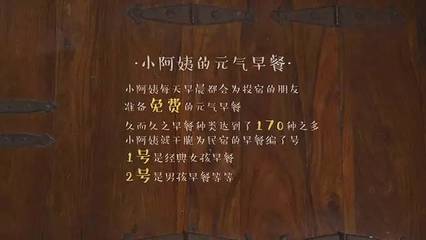 ·小阿姨的元气早餐·
小阿姨每天早晨都会为投宿的朋友
准备免费的元气早餐
久而久之早餐种类达到了170种之多
小阿姨就干脆为民宿的早餐编了号
1号是经典女孩早餐
2号是男孩早餐等等